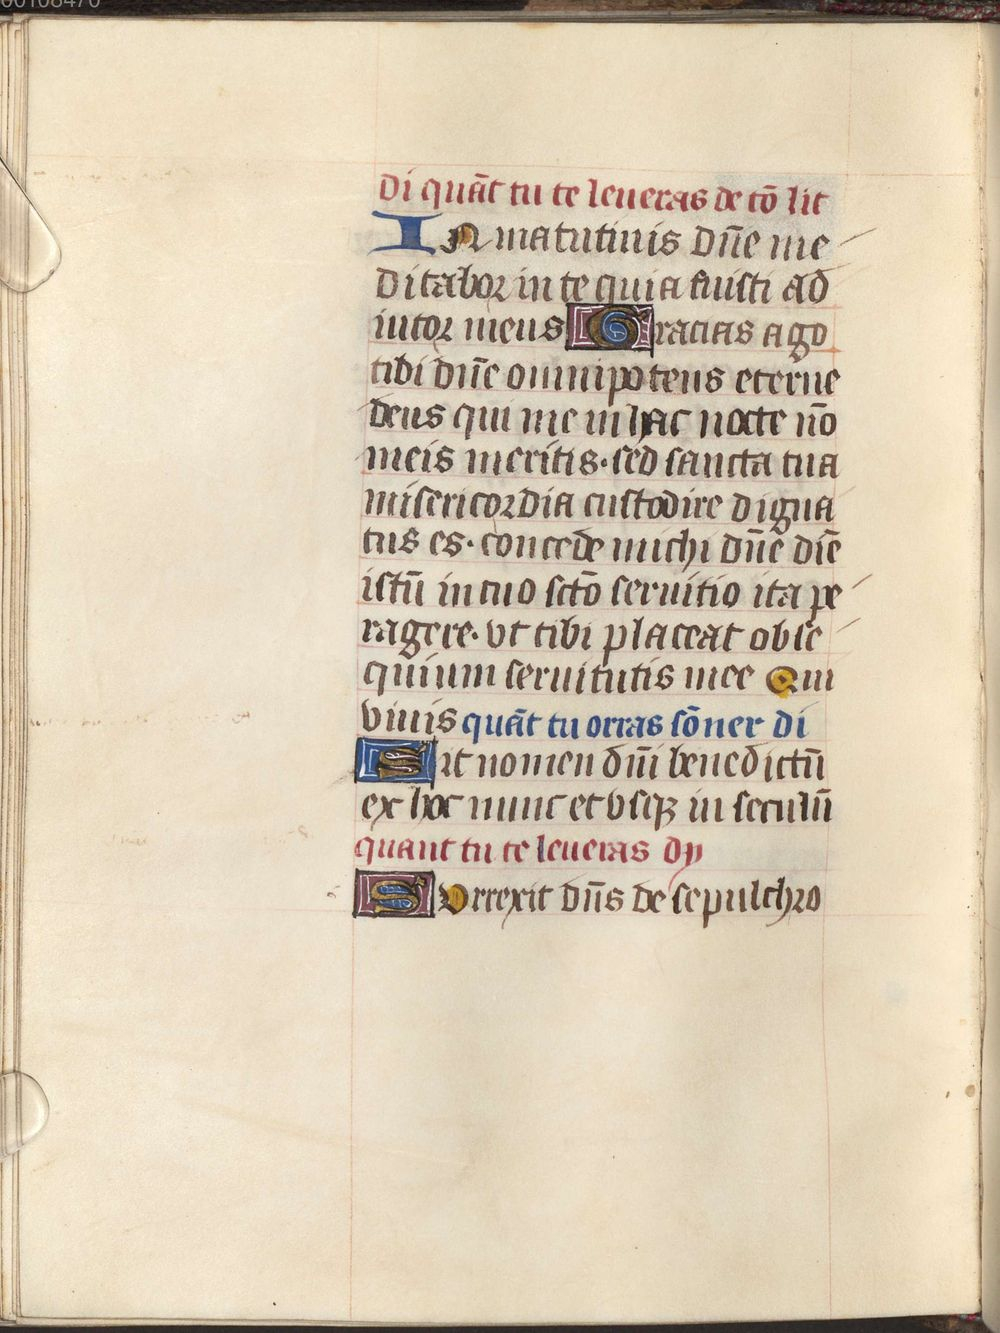 di quāt tu te leueras de tō lit
In matutinis dn̄e me
ditabor in te quia fuisti ad
iutor meus Gracias ago
tibi dn̄e omnipotens eterne
deus qui me in hac nocte nō
meis meritis· sed sancta tua
misericordia custodire digna
tus es· concede michi dn̄e diē
istū in tuo scto seruitio ita pe
ragere· vt tibi placeat obse
quium seruitutis mee Qui
viuis quāt tu orras sōner di
Sit nomen dn̄i benedictū
ex hoc nunc et vsqꝫ in seculū
quant tu te leueras dy
Surrexit dn̄s de sepulchro